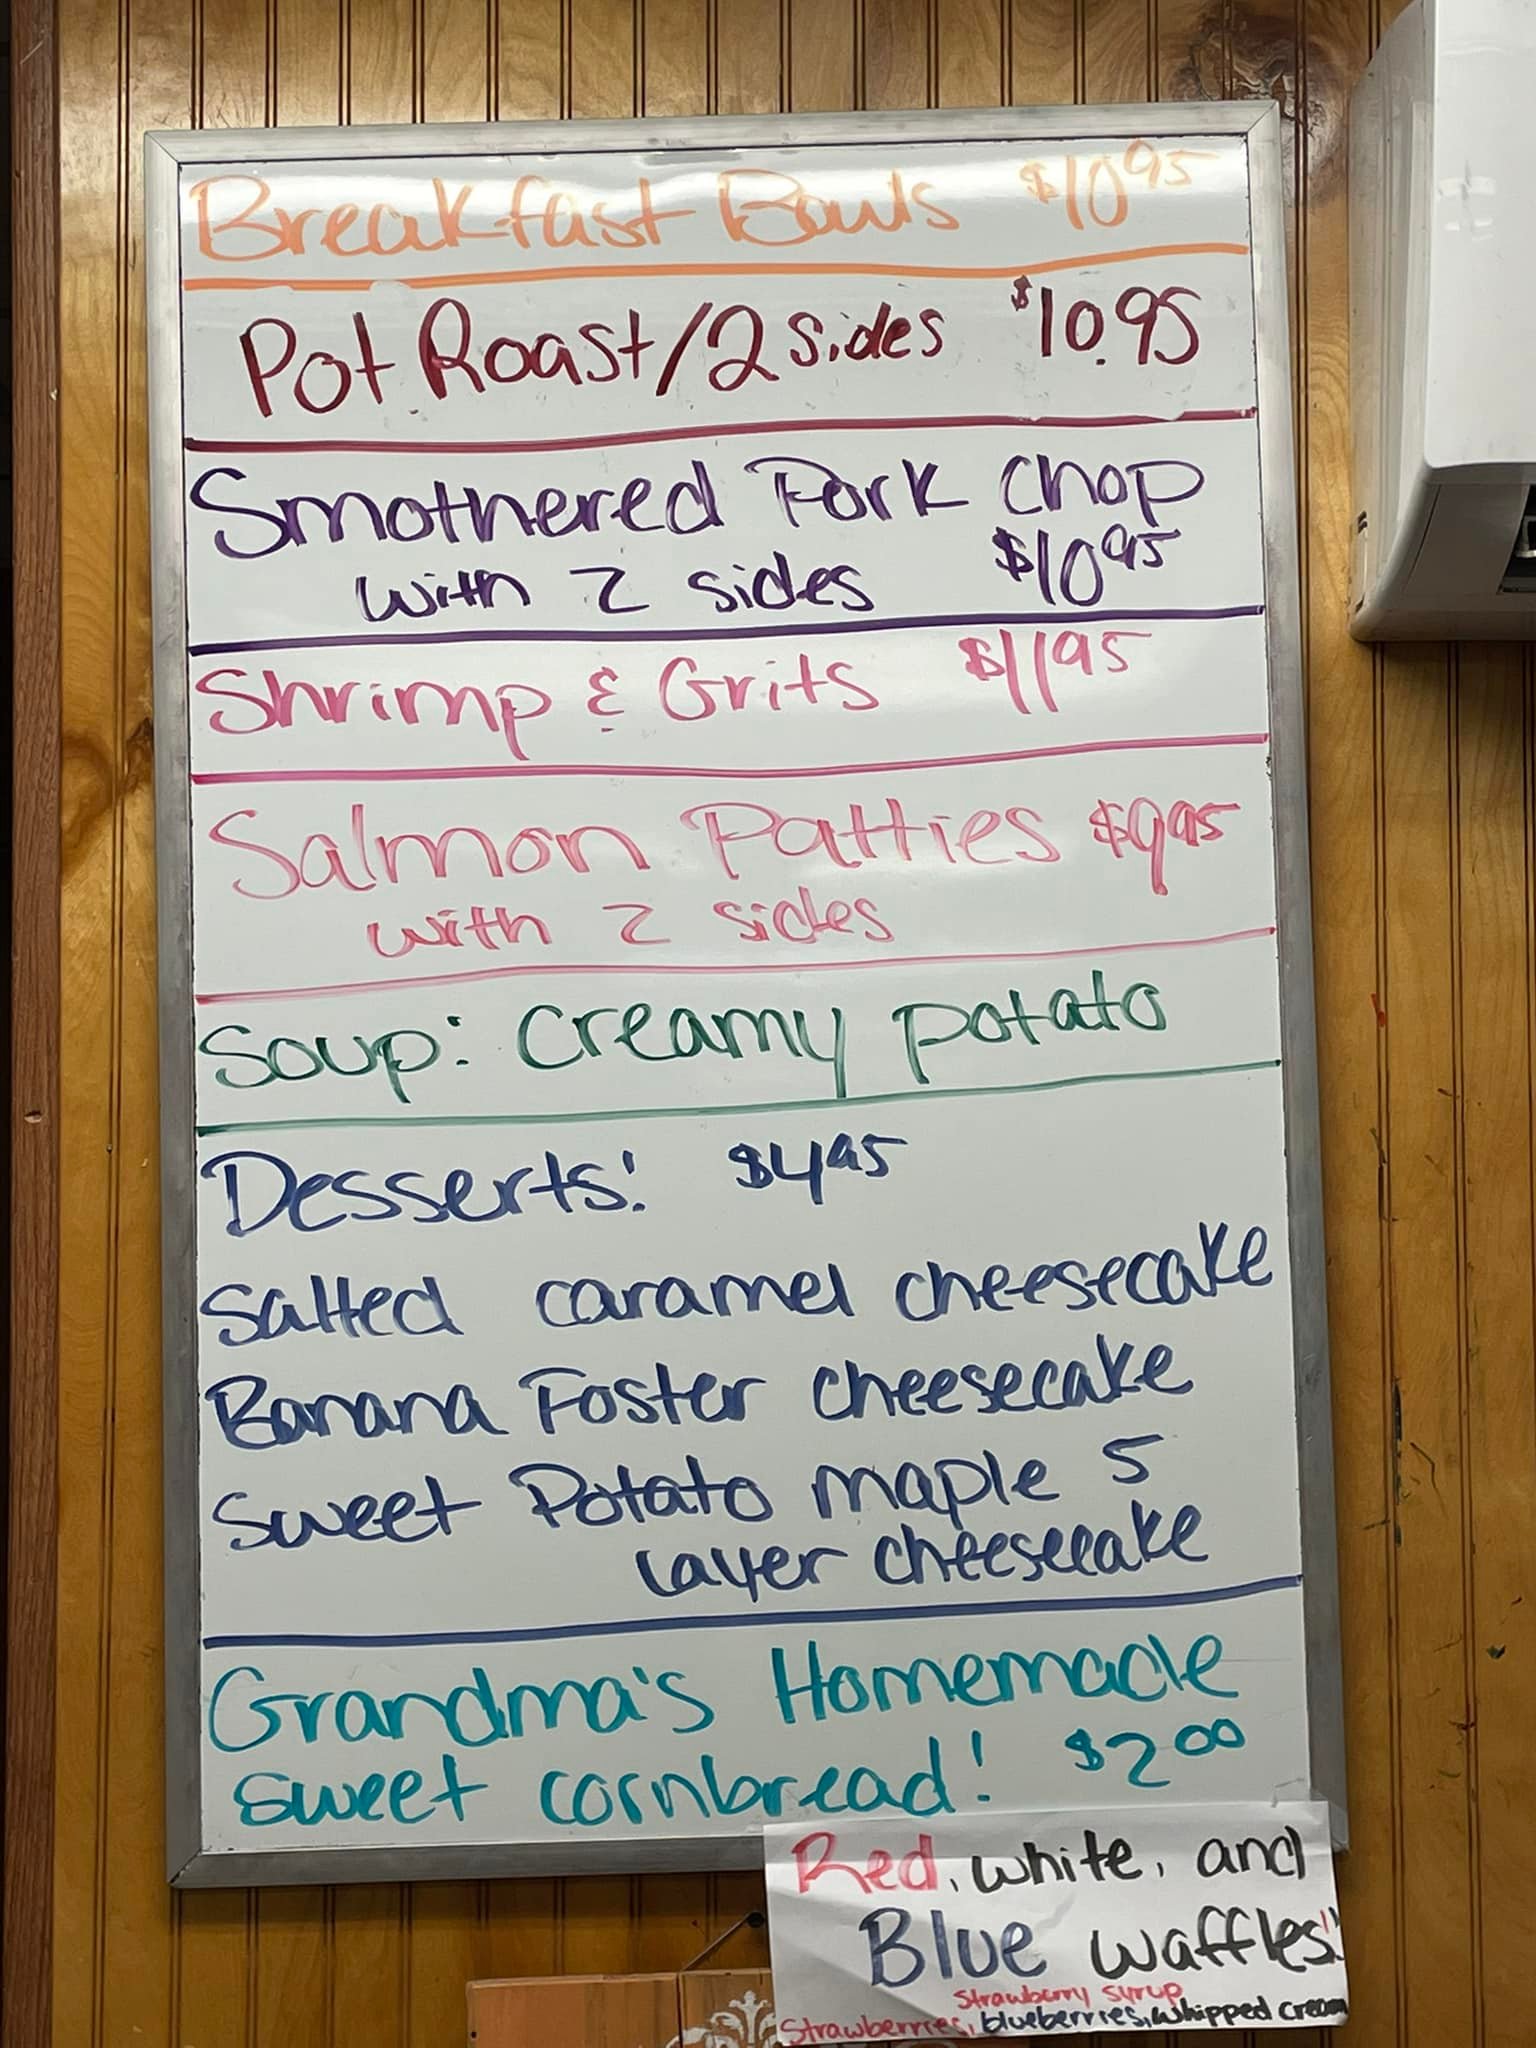 Breakfast Bowls $10 95
Pot Roast/2 sides $10.95
Smothered Pork Chop
with 2 sides $10 95
Shrimp & Grits $11 95
Salmon Patties $9 95
with 2 sides
Soup: Creamy potato
Desserts: $4 95
Salted caramel cheesecake
Banana Foster cheesecake
Sweet Potato maple 5
layer cheesecake
Grandma's Homemade
sweet cornbread! $2 00
Red, white, and
Blue waffles!!
strawberry syrup
Strawberries, blueberries, whipped cream